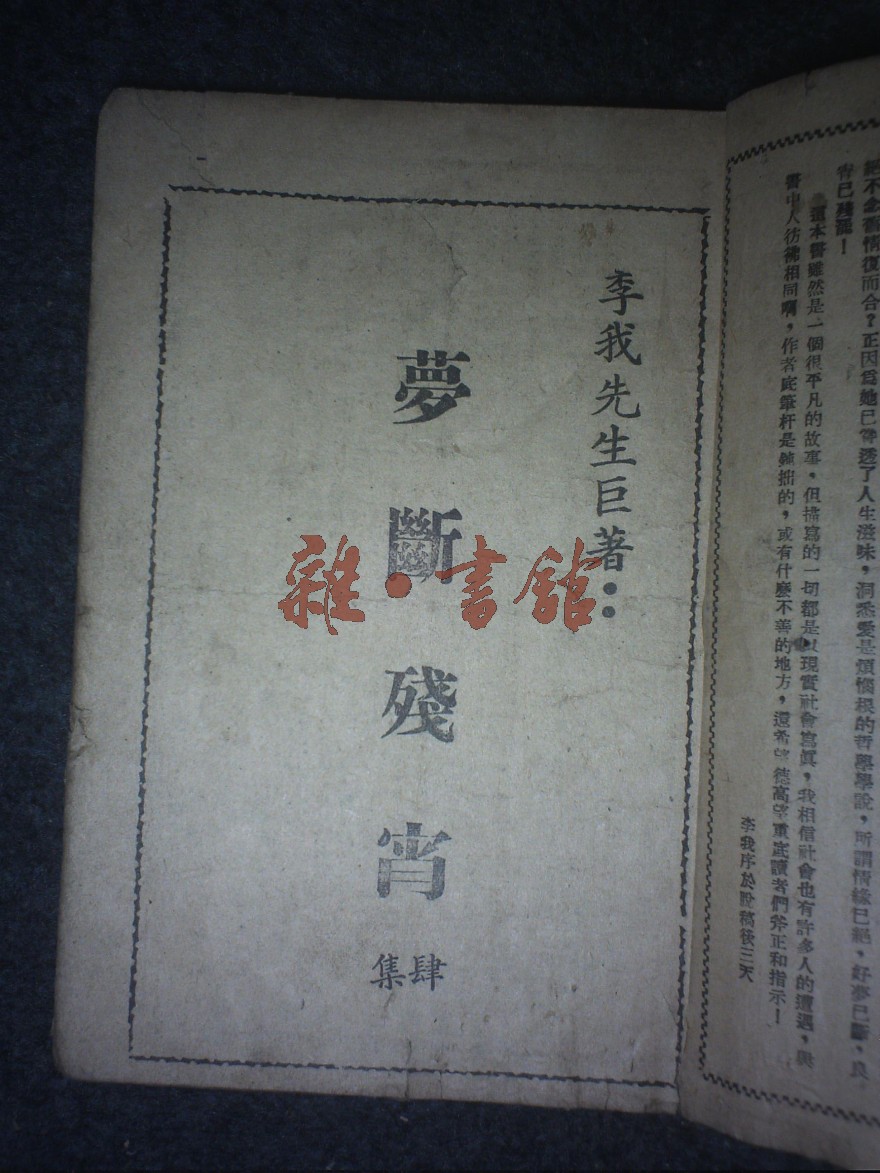 絕不念舊情復而合?正因爲她已嘗透了人生滋味,洞悉愛是煩惱根的哲學學說,所謂情緣已絕,好夢已斷,良
宵已殘罷!
這本書雖然是一個很平凡的故事,但描寫的一切都是以現實社會寫眞,我相信社會也有許多人的遭遇,與
書中人彷彿相同啊,作者底筆杆是鈍拙的,或有什麼不善的地方,還希望德高望重底讀者們斧正和指示!
李我序於脫稿後三天
李我先生巨著:
夢斷殘宵
肆集
雜·書館